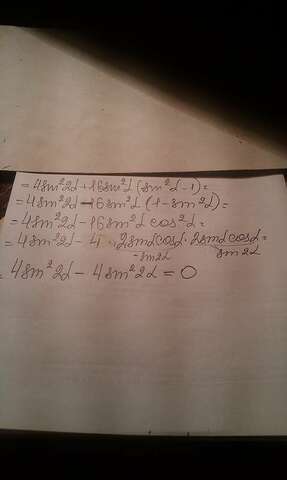 = 4sin²2α + 16sin²α (sin²α - 1) =
= 4sin²2α - 16sin²α (1 - sin²α) =
= 4sin²2α - 16sin²α cos²α =
= 4sin²2α - 4 · 2sinαcosα · 2sinαcosα =
sin2α sin2α
= 4sin²2α - 4sin²2α = 0